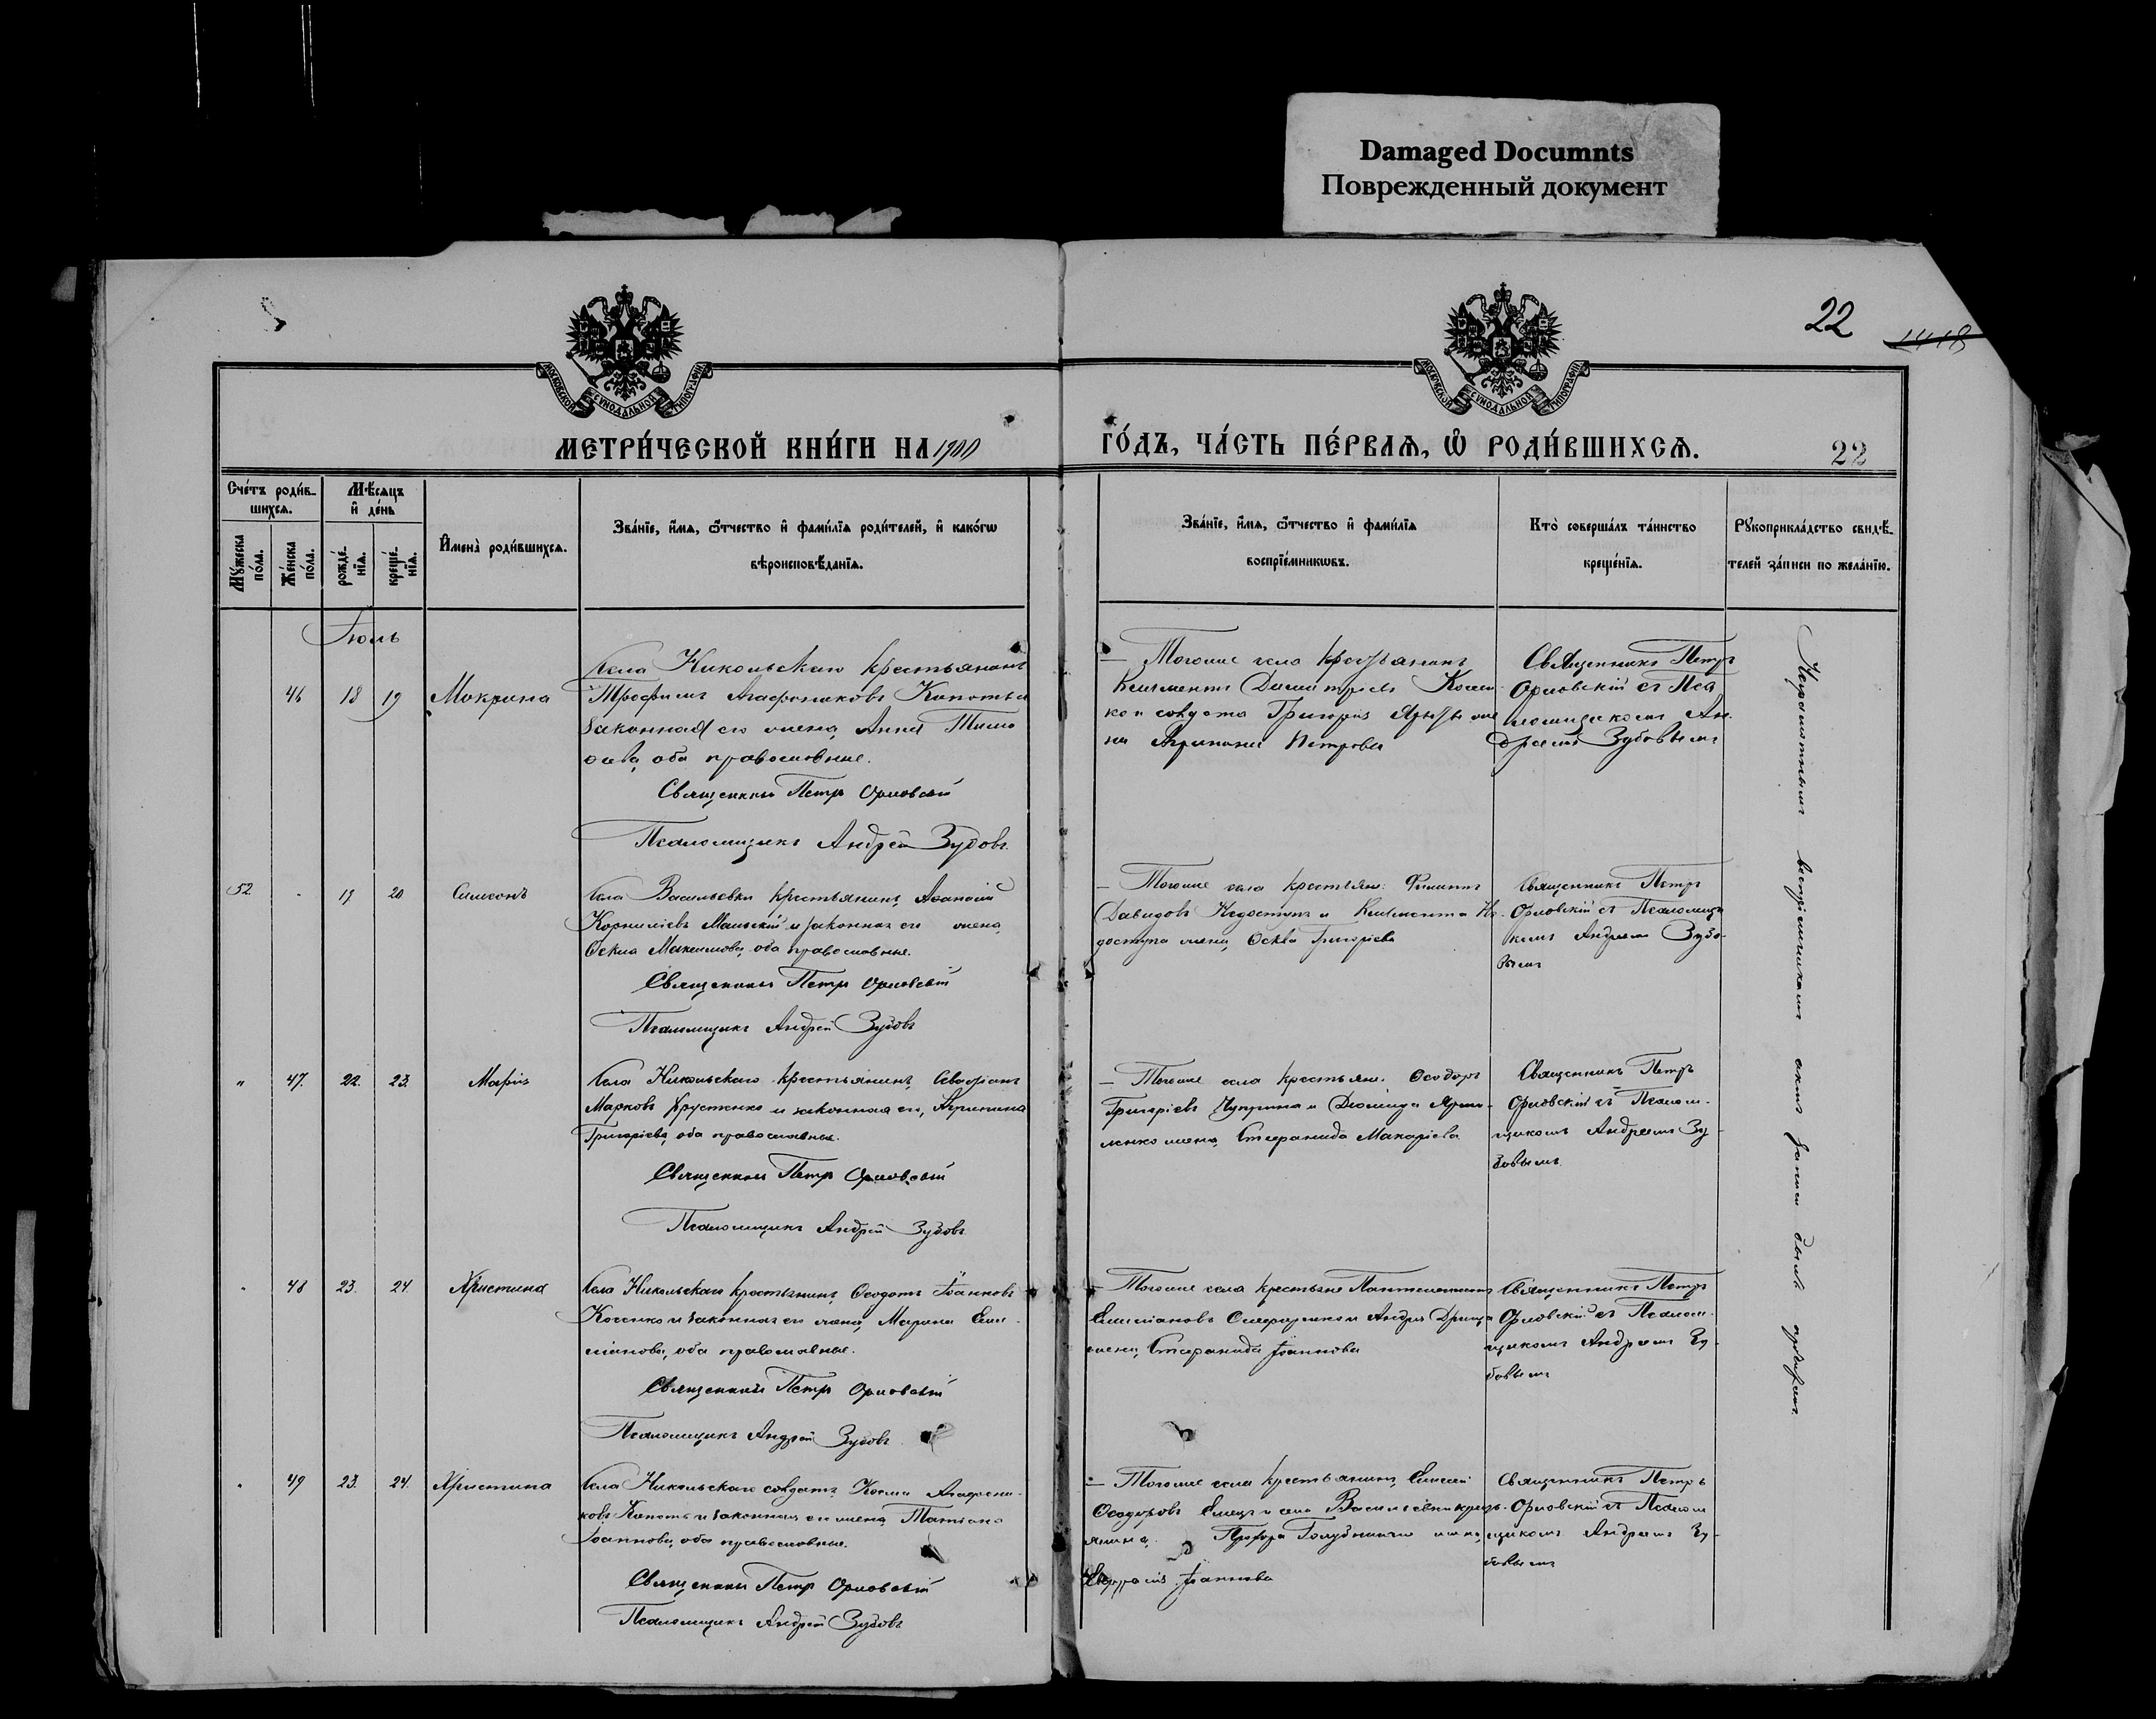 Damaged Documnts
Поврежденный документ
22
22
МЕТРИ́ЧЕСКОЙ КНИ́ГИ НА 1900
ГО́ДЪ, ЧА́СТЬ ПЕ́РВАѦ, Ѿ РОДИ́ВШИХСѦ.
Сче́тъ роди́в-
шихсѧ.
Мѣ́сѧцъ
и҆ де́нь
Мꙋ́жеска по́ла.
Же́нска по́ла.
рожде́-
нїѧ.
креще́-
нїѧ.
И҆мена̀ роди́вшихсѧ.
Зва́нїе, и҆́мѧ, ѻ҆́тчество и҆ фами́лїѧ роди́телей, и҆ како́гѡ
вѣроисповѣ́данїѧ.
Зва́нїе, и҆́мѧ, ѻ҆́тчество и҆ фами́лїѧ
воспрїе́мникѡвъ.
Кто̀ соверша́лъ та́инство
креще́нїѧ.
Рꙋкоприкла́дство свидѣ́-
телей за́писи по жела́нїю.
Іюль
46 18 19 Мокрина
Села Никольскаго крестьянинъ
Трофимъ Агафониковъ
законная его жена, Анна
оба православные.
Священникъ Петръ Орловскій
Псаломщикъ Андрей Зубовъ.
— Тогоже села крестьянинъ
Климентъ Димитріевъ
солдата Григорія
Агрипина Петрова
Священникъ Петръ
Орловскій съ Пса
ломщикомъ Ан-
дреемъ Зубовымъ
52 - 19 20 Симеонъ
Села Васильевки крестьянинъ, Аѳанасій
Корниліевъ и законная его жена,
Ѳекла Максимова, оба православные.
Священникъ Петръ Орловскій
Псаломщикъ Андрей Зубовъ
— Тогоже села крестьян: Филиппъ
Давидовъ Недоступъ и Климента Не-
доступа жена, Григоріева
Священникъ Петръ
Орловскій съ Псаломщи
комъ Андреемъ Зубо-
вымъ
" 47. 22. 23. Марія
Села Никольскаго крестьянинъ,
Марковъ Хрустенко и законная его, Агрипина
Григоріева, оба православные.
Священникъ Петръ Орловскій
Псаломщикъ Андрей Зубовъ
— Тогоже села крестьян: Ѳеодоръ
Григоріевъ Чуприна и Діомида
ленко жена, Стефанида Макаріева
Священникъ Петръ
Орловскій съ Псалом-
щикомъ Андреемъ Зу-
бовымъ.
48 23. 24. Христина
Села Никольскаго крестьянинъ, Ѳеодотъ Іоанновъ
Косенко и законная его жена, Марина Еми-
ліанова, оба православные.
Священникъ Петръ Орловскій
Псаломщикъ Андрей Зубовъ
— Тогоже села крестьяне Пантелеимонъ
Емиліановъ и Андрея
жена, Стефанида Іоаннова
Священникъ Петръ
Орловскій съ Псалом-
щикомъ Андреемъ Зу-
бовымъ
49 23. 24. Христина
Села Никольскаго солдатъ, Косма Агафони-
ковъ и законная его жена, Татіана
Іоаннова, оба православные.
Священникъ Петръ Орловскій
Псаломщикъ Андрей Зубовъ
— Тогоже села крестьянинъ, Елисей
Ѳеодоровъ и села Васильевки кресть-
янина, жена,
Іоаннова
Священникъ Петръ
Орловскій съ Псалом
щикомъ Андреемъ Зу-
бовымъ
Неграмотнымъ воспріемникамъ актъ записи былъ